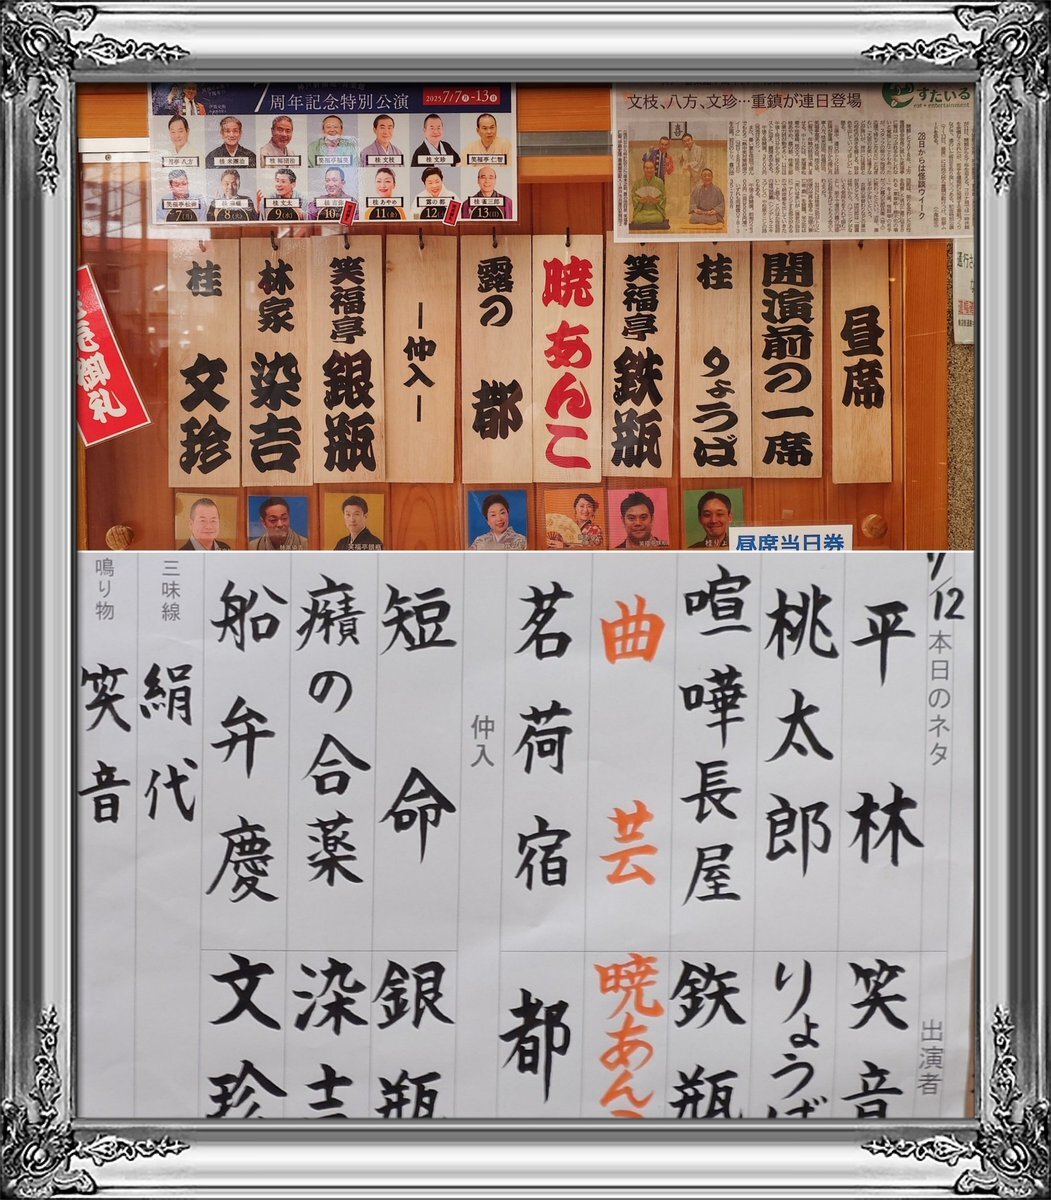 7周年記念特別公演
2025 7/7(月)-13(日)
桂 米團治
桂 福団治
笑福亭福笑
桂 文枝
桂 文珍
笑福亭 仁智
笑福亭松喬
桂 文太
桂 あやめ
露の 都
桂 雀三郎
7(月)
8(火)
9(水)
10(木)
11(金)
12(土)
13(日)
文枝、八方、文珍…重鎮が連日登場
すたいる
eat+entertainment
28日からは怪談ウイーク
昼席
開演前の一席
桂 りょうば
笑福亭 鉄瓶
暁あんこ
露の 都
―仲入―
笑福亭 銀瓶
林家 染吉
桂 文珍
御礼
昼席当日券
7/12本日のネタ
出演者
平林 笑音
桃太郎 りょうば
喧嘩長屋 鉄瓶
曲芸 暁あんこ
茗荷宿 都
仲入
短命 銀瓶
癪の合薬 染吉
船弁慶 文珍
三味線 絹代
鳴り物 笑音